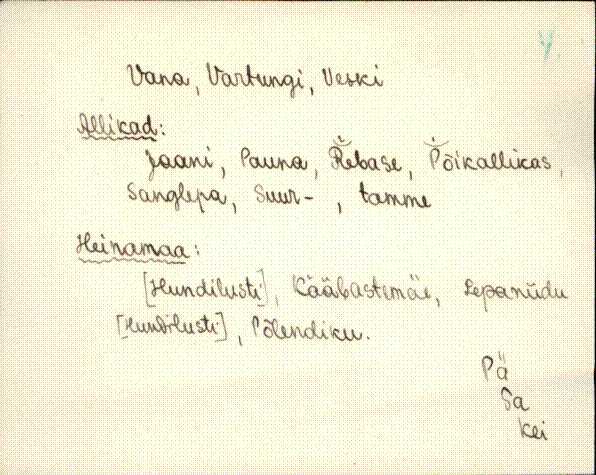 Vana, Vartungi, Veski
Allikad:
Jaani, Pauna, Rebase, Põikallikas,
Sanglepa, Suur- , tamme
Heinamaa:
[Hundilusti], Kääbastemäe, Lepaniidu
[Hundilusti], Põlendiku.
Pä
Sa
Kei